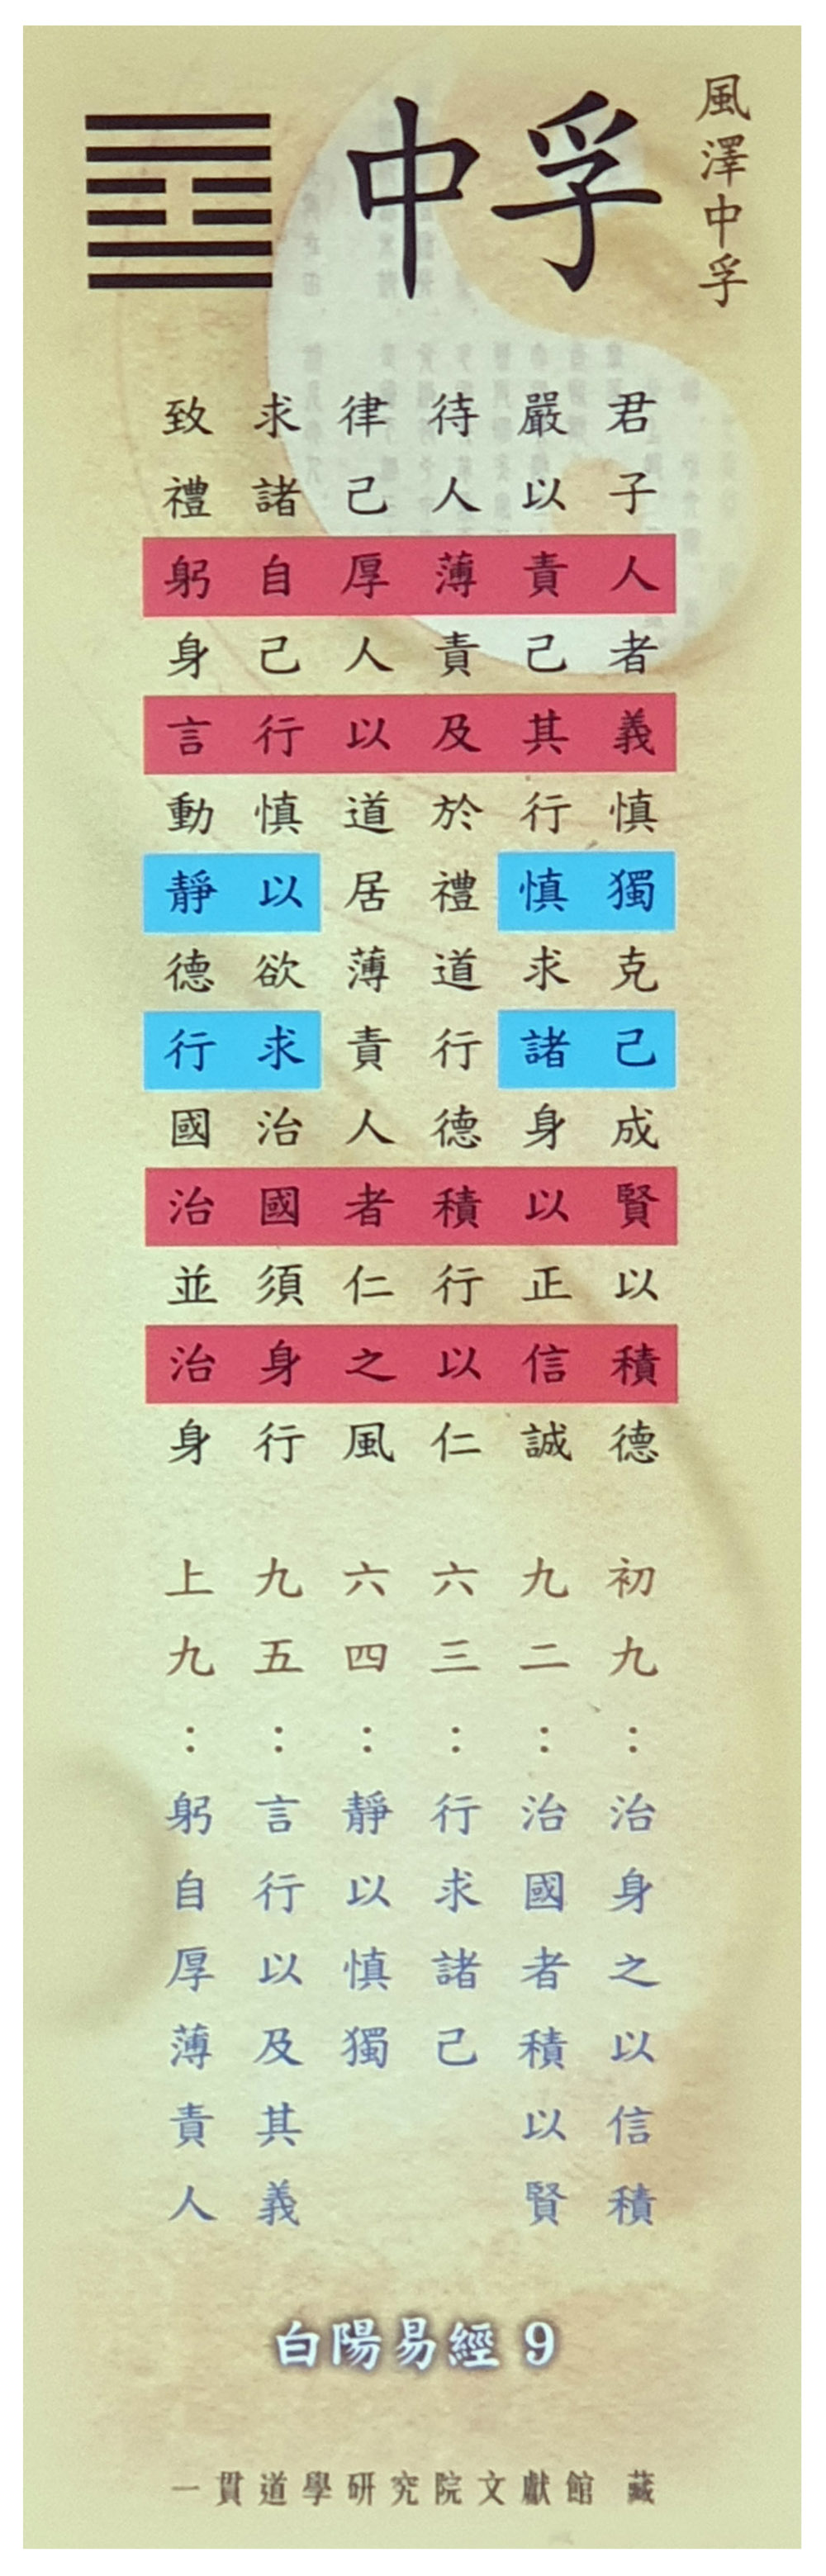 風澤中孚
中孚
君子人者義慎獨克己成賢以積德
嚴以責己其行慎求諸身以正信誠
待人薄責及於禮道行德積行以仁
律己厚人以道居薄責人者仁之風
求諸自己行慎以欲求治國須身行
致禮躬身言動靜德行國治並治身
初九：治身之以信積
九二：治國者積以賢
六三：行求諸己
六四：靜以慎獨
九五：言行以及其義
上九：躬自厚薄責人
白陽易經 9
一貫道學研究院文獻館 藏